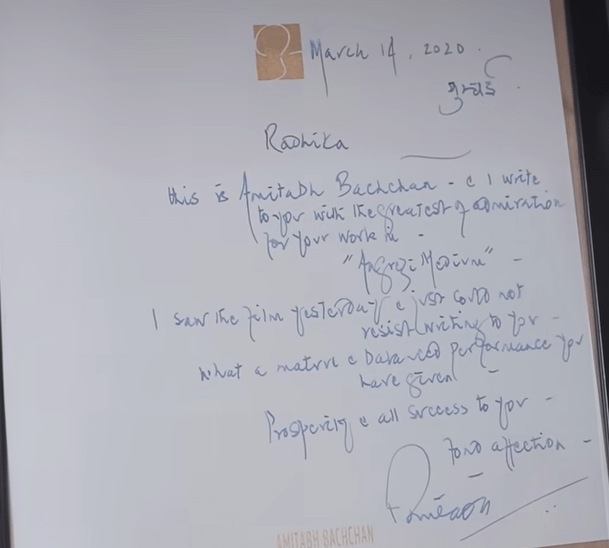 March 14, 2020.
मुम्बई.
Radhika
this is Amitabh Bachchan - & I write
to you with the greatest of admiration
for your work in -
"Angrezi Medium" -
I saw the film yesterday & just could not
resist writing to you -
what a mature & balanced performance you
have given -
Prosperity & all success to you -
fond affection -
AMITABH BACHCHAN